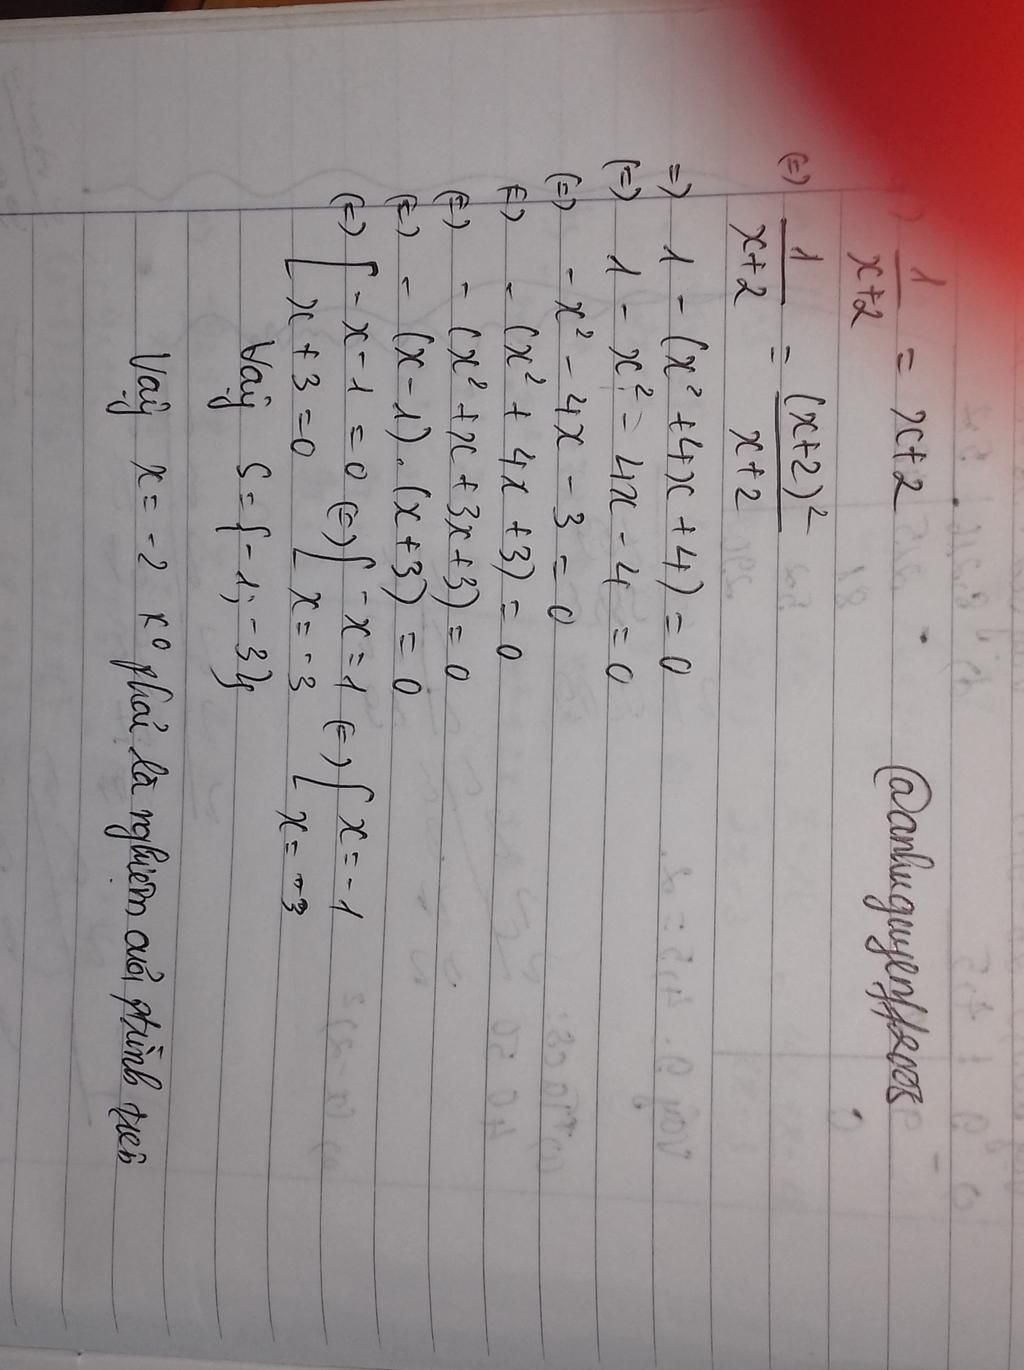 1/(x+2) = x+2
@anhnguyenff2008
(=) 1/(x+2) = (x+2)²/(x+2)
=) 1 - (x² + 4x + 4) = 0
(=) 1 - x² - 4x - 4 = 0
(=) - x² - 4x - 3 = 0
(=) - (x² + 4x + 3) = 0
(=) - (x² + x + 3x + 3) = 0
(=) - (x - 1). (x + 3) = 0
(=) [ - x - 1 = 0 (=) [ - x = 1 (=) [ x = - 1
[ x + 3 = 0 [ x = - 3 [ x = - 3
Vậy S = { - 1; - 3}
Vậy x = - 2 k⁰ phải là nghiệm của trình trên